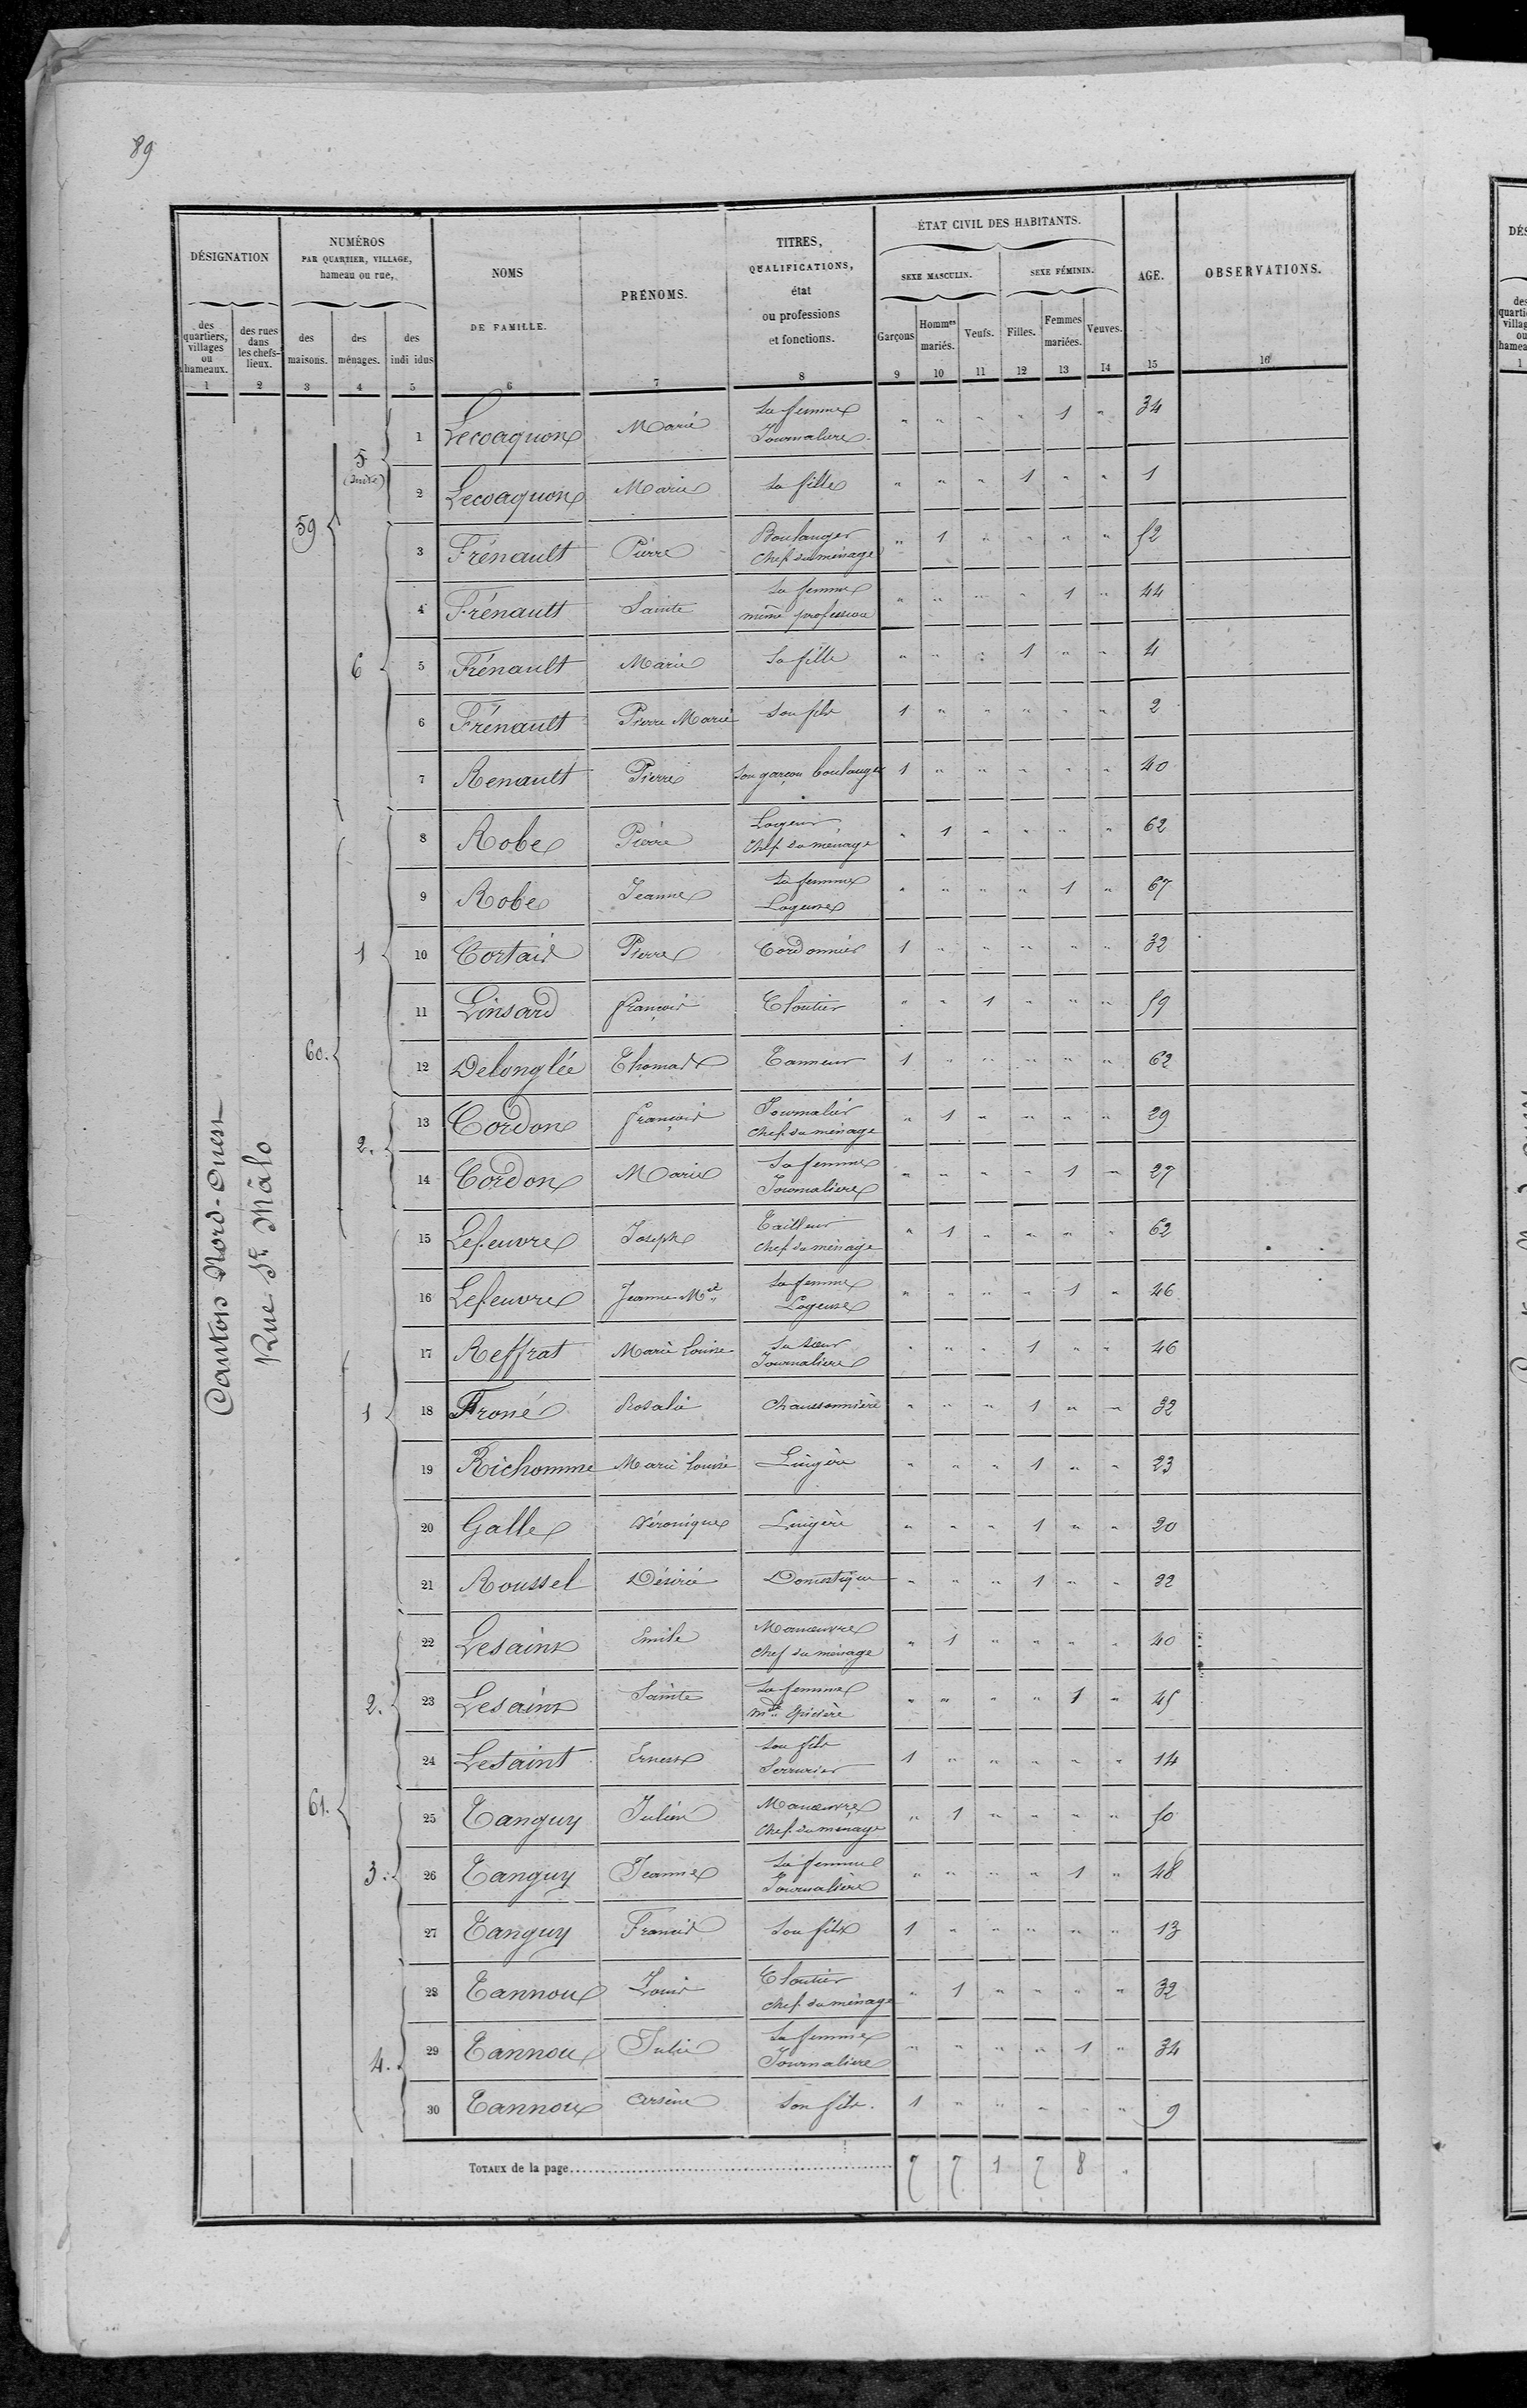 89
DÉSIGNATION
NUMÉROS
PAR QUARTIER, VILLAGE,
hameau ou rue,
NOMS
DE FAMILLE.
PRÉNOMS.
TITRES,
QUALIFICATIONS,
état
ou professions
et fonctions.
ÉTAT CIVIL DES HABITANTS.
SEXE MASCULIN.
SEXE FÉMININ.
AGE.
OBSERVATIONS.
des quartiers, villages ou hameaux.
des rues dans les chefs-lieux.
des maisons.
des ménages.
des indi idus
Garçons
Hommes mariés.
Veufs.
Filles.
Femmes mariées.
Veuves.
1 2 3 4 5 6 7 8 9 10 11 12 13 14 15 16
Canton Nord-Ouest
Rue St. Mâlo
59 5 (suite) 1 Lecoaquon Marie Sa femme Journalière " " " " 1 " 34
2 Lecoaquon Marie Sa fille " " " 1 " " 1
6 3 Frénault Pierre Boulanger Chef du ménage " 1 " " " " 52
4 Frénault Sainte Sa femme même profession " " " " 1 " 44
5 Frénault Marie Sa fille " " " 1 " " 4
6 Frénault Pierre Marie Son fils 1 " " " " " 2
7 Renault Pierre Son garçon boulanger 1 " " " " " 40
60. 1 8 Robe Pierre Logeur Chef du ménage " 1 " " " " 62
9 Robe Jeanne Sa femme Logeuse " " " " 1 " 67
10 Cortais Pierre Cordonnier 1 " " " " " 32
11 Linsard François Cloutier " " 1 " " " 59
12 Delonglée Thomas Tanneur 1 " " " " " 62
2. 13 Cordon François Journalier Chef du ménage " 1 " " " " 29
14 Cordon Marie Sa femme Journalière " " " " 1 " 27
61. 1 15 Lefeuvre Joseph Tailleur Chef du ménage " 1 " " " " 62
16 Lefeuvre Jeanne Mie Sa femme Logeuse " " " " 1 " 46
17 Reffrat Marie Louise Sa sœur Journalière " " " 1 " " 46
18 Froné Rosalie Chaussonnière " " " 1 " " 32
19 Richomme Marie Louise Lingère " " " 1 " " 23
20 Galle Véronique Lingère " " " 1 " " 20
21 Roussel Désirée Domestique " " " 1 " " 32
2. 22 Lesaint Emile Manœuvre Chef du ménage " 1 " " " " 40
23 Lesaint Sainte Sa femme mde Epicière " " " " 1 " 45
24 Lesaint Ernest Son fils Serrurier 1 " " " " " 14
3. 25 Tanguy Julien Manœuvre Chef du ménage " 1 " " " " 50
26 Tanguy Jeanne Sa femme Journalière " " " " 1 " 48
27 Tanguy Francis Son fils 1 " " " " " 13
4. 28 Tannou Louis Cloutier Chef du ménage " 1 " " " " 32
29 Tannou Julie Sa femme Journalière " " " " 1 " 34
30 Tannou Arsène Son fils. 1 " " " " " 9
TOTAUX de la page 7 7 1 7 8 "